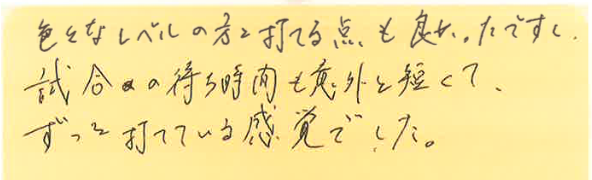 色々なレベルの方と打てる点も良かったですし、
試合の待ち時間も意外と短くて、
ずっと打てている感覚でした。